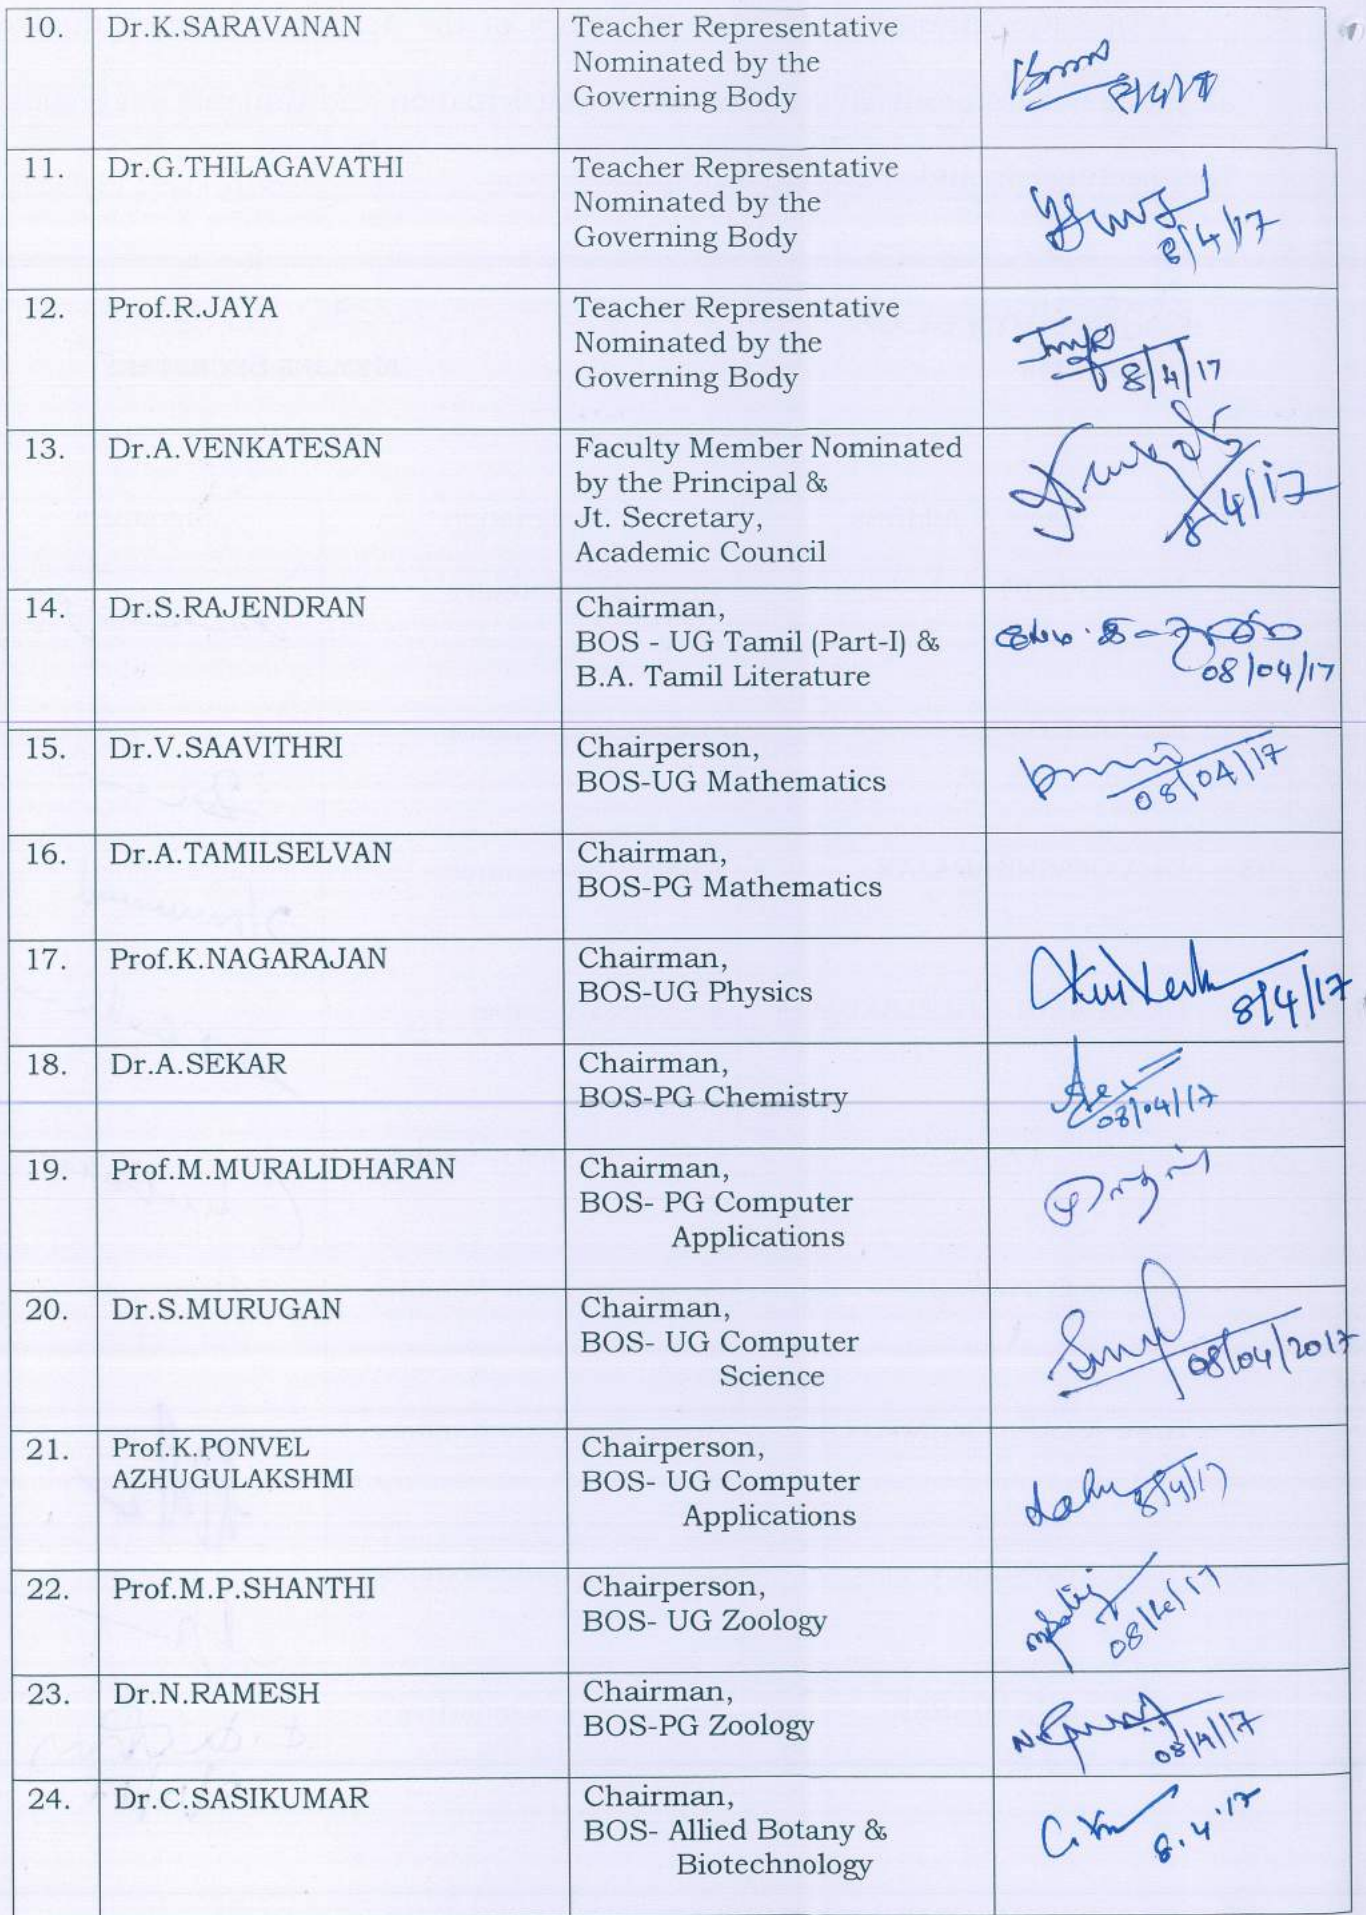 10. Dr.K.SARAVANAN Teacher Representative
Nominated by the
Governing Body
8/4/17
11. Dr.G.THILAGAVATHI Teacher Representative
Nominated by the
Governing Body
8/4/17
12. Prof.R.JAYA Teacher Representative
Nominated by the
Governing Body
8/4/17
13. Dr.A.VENKATESAN Faculty Member Nominated
by the Principal &
Jt. Secretary,
Academic Council
8/4/17
14. Dr.S.RAJENDRAN Chairman,
BOS - UG Tamil (Part-I) &
B.A. Tamil Literature
08/04/17
15. Dr.V.SAAVITHRI Chairperson,
BOS-UG Mathematics
08/04/17
16. Dr.A.TAMILSELVAN Chairman,
BOS-PG Mathematics
17. Prof.K.NAGARAJAN Chairman,
BOS-UG Physics
8/4/17
18. Dr.A.SEKAR Chairman,
BOS-PG Chemistry
08/04/17
19. Prof.M.MURALIDHARAN Chairman,
BOS- PG Computer
Applications
20. Dr.S.MURUGAN Chairman,
BOS- UG Computer
Science
08/04/2017
21. Prof.K.PONVEL Chairperson,
AZHUGULAKSHMI BOS- UG Computer
Applications
8/4/17
22. Prof.M.P.SHANTHI Chairperson,
BOS- UG Zoology
23. Dr.N.RAMESH Chairman,
BOS-PG Zoology
08/4/17
24. Dr.C.SASIKUMAR Chairman,
BOS- Allied Botany &
Biotechnology
8.4.17